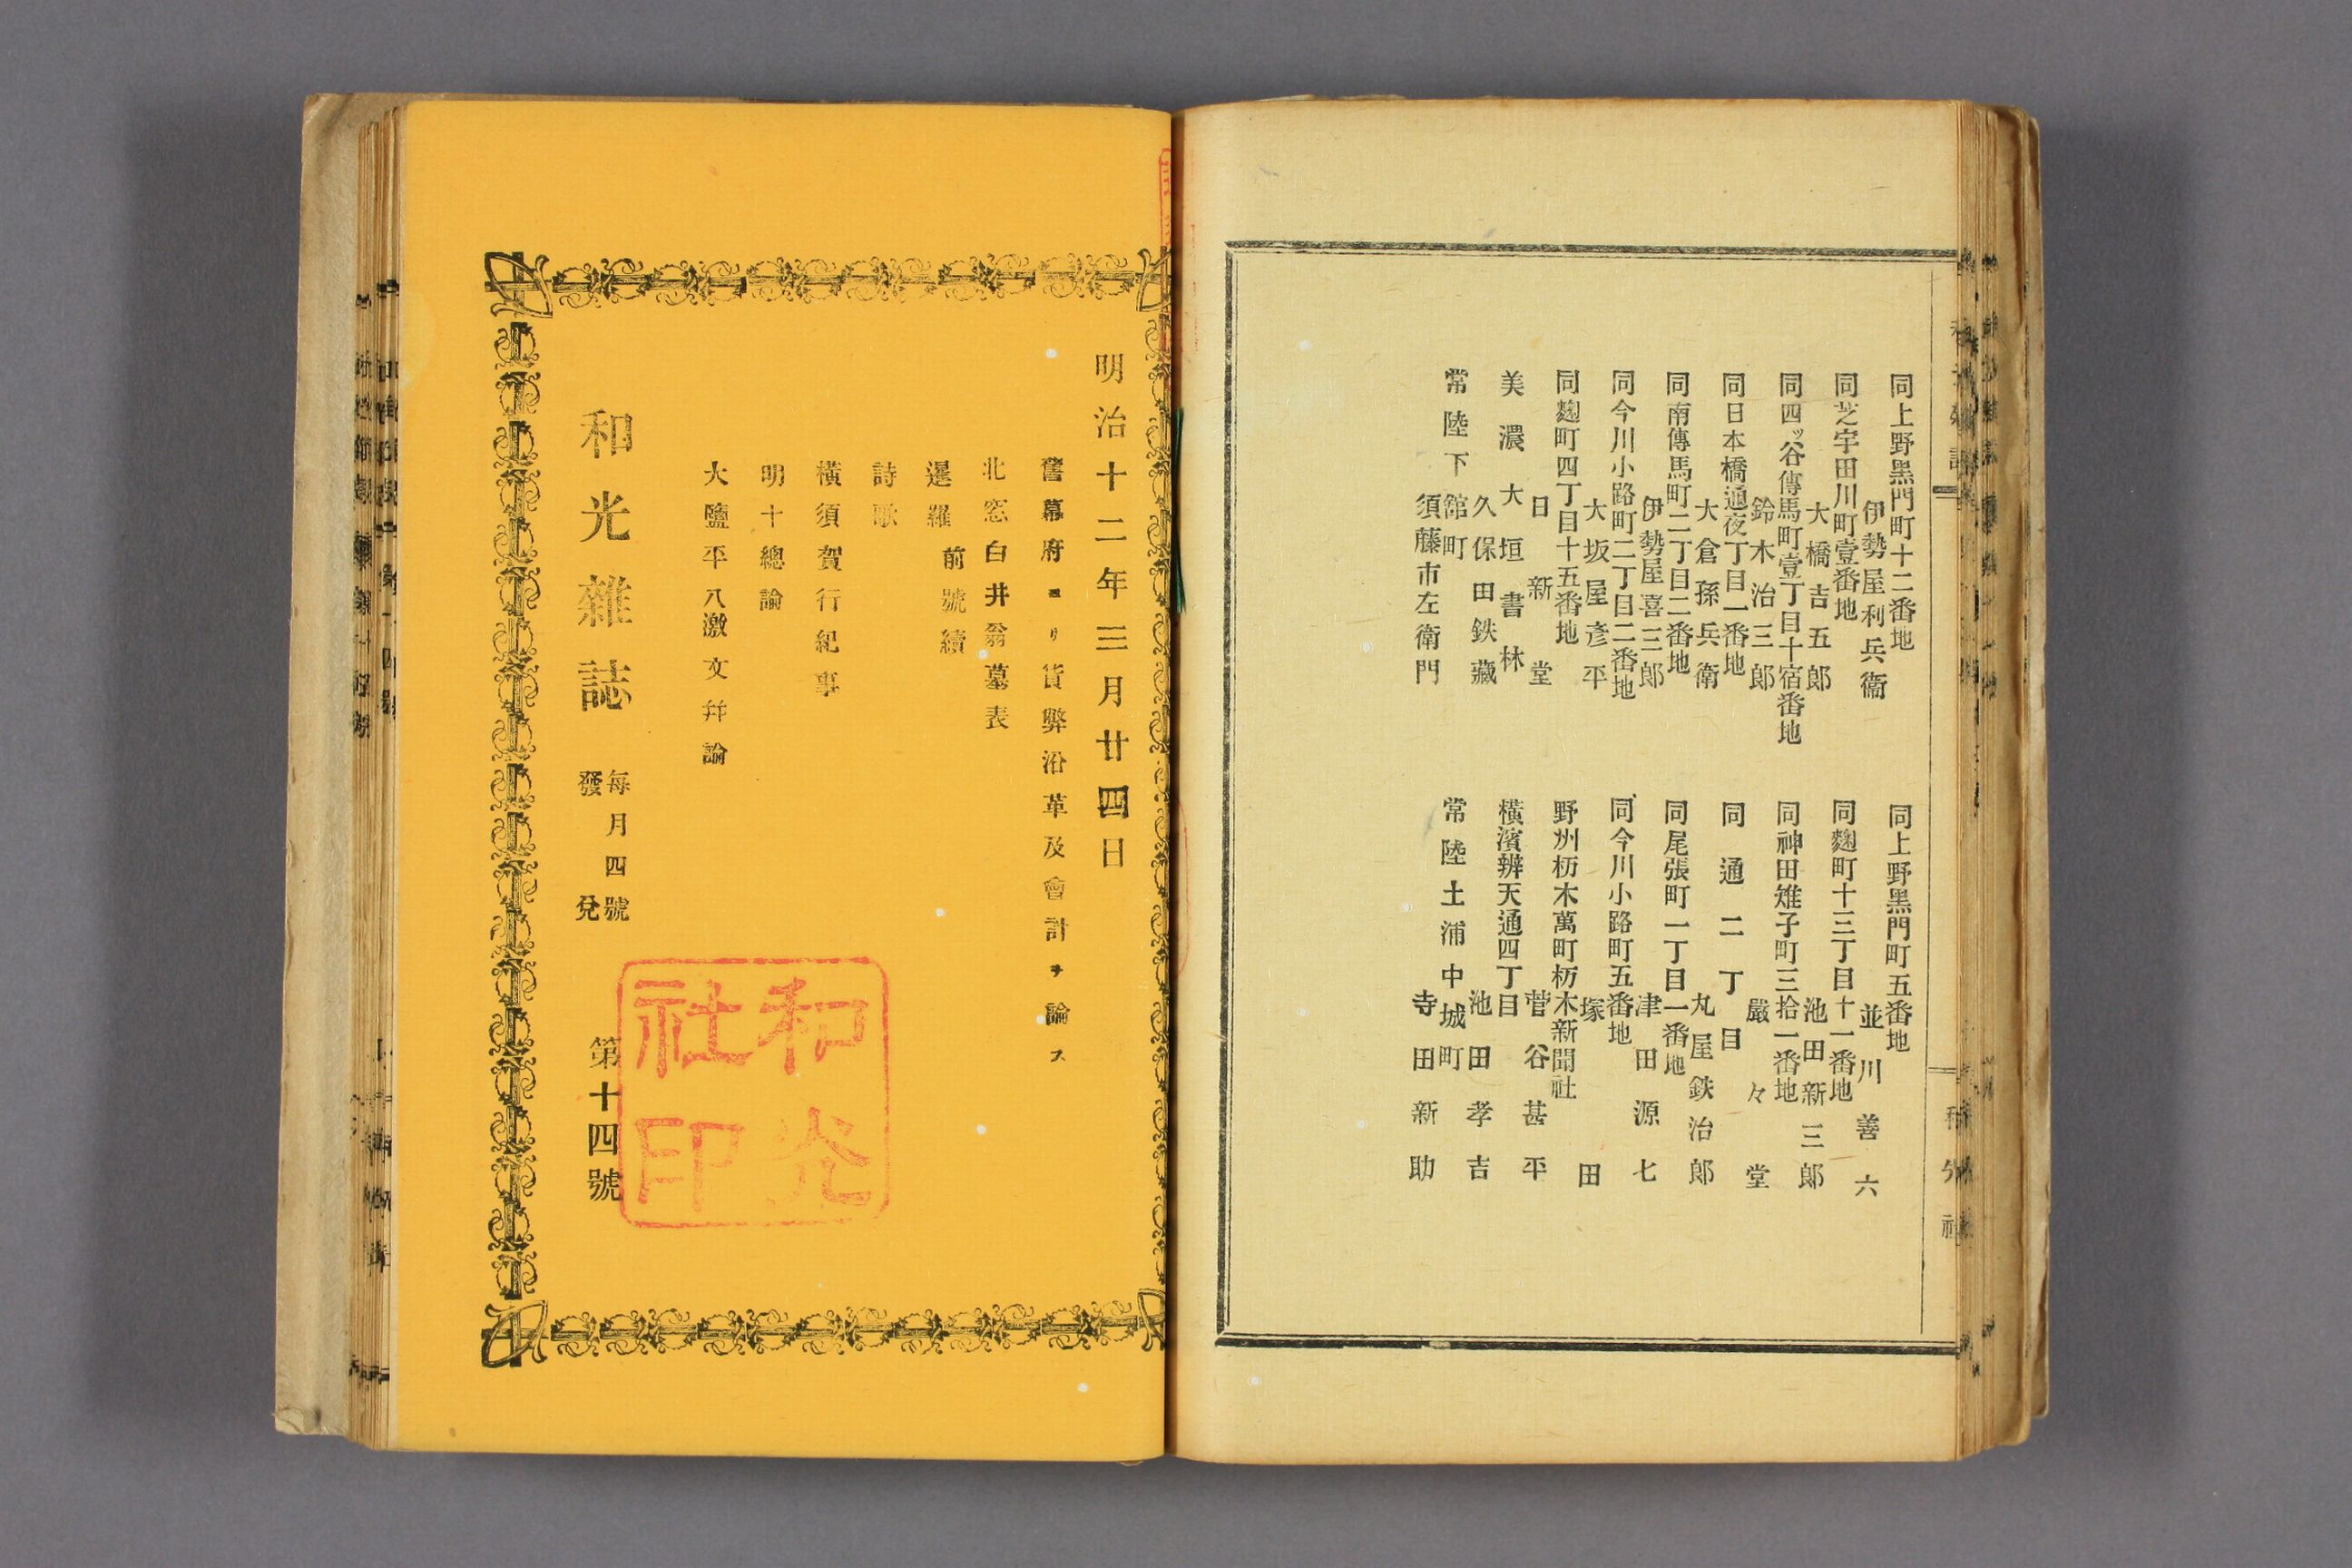 同上野黒門町十二番地
伊勢屋利兵衞
同芝宇田川町壹番地
大橋吉五郎
同四ッ谷傳馬町壹丁目十宿番地
鈴木治三郎
同日本橋通夜丁目一番地
大倉孫兵衞
同南傳馬町二丁目二番地
伊勢屋喜三郎
同今川小路町二丁目二番地
大坂屋彦平
同麴町四丁目十五番地
日新堂
美濃大垣書林
久保田鉄藏
常陸下舘町
須藤市左衞門
同上野黒門町五番地
並川善六
同麴町十三丁目十一番地
池田新三郎
同神田雉子町三拾一番地
嚴々堂
同通二丁目
丸屋鉄治郎
同尾張町一丁目一番地
津田源七
同今川小路町五番地
塚田
野州栃木萬町栃木新聞社
菅谷甚平
横濱辨天通四丁目
池田孝吉
常陸土浦中城町
寺田新助
明治十二年三月廿四日
舊幕府ヨリ貨弊沿革及會計ヲ論ス
北窓白井翁墓表
暹羅前號續
詩歌
横須賀行紀事
明十總論
大鹽平八激文幷論
和光雜誌
每月四號
發兌
第十四號
和光
社印